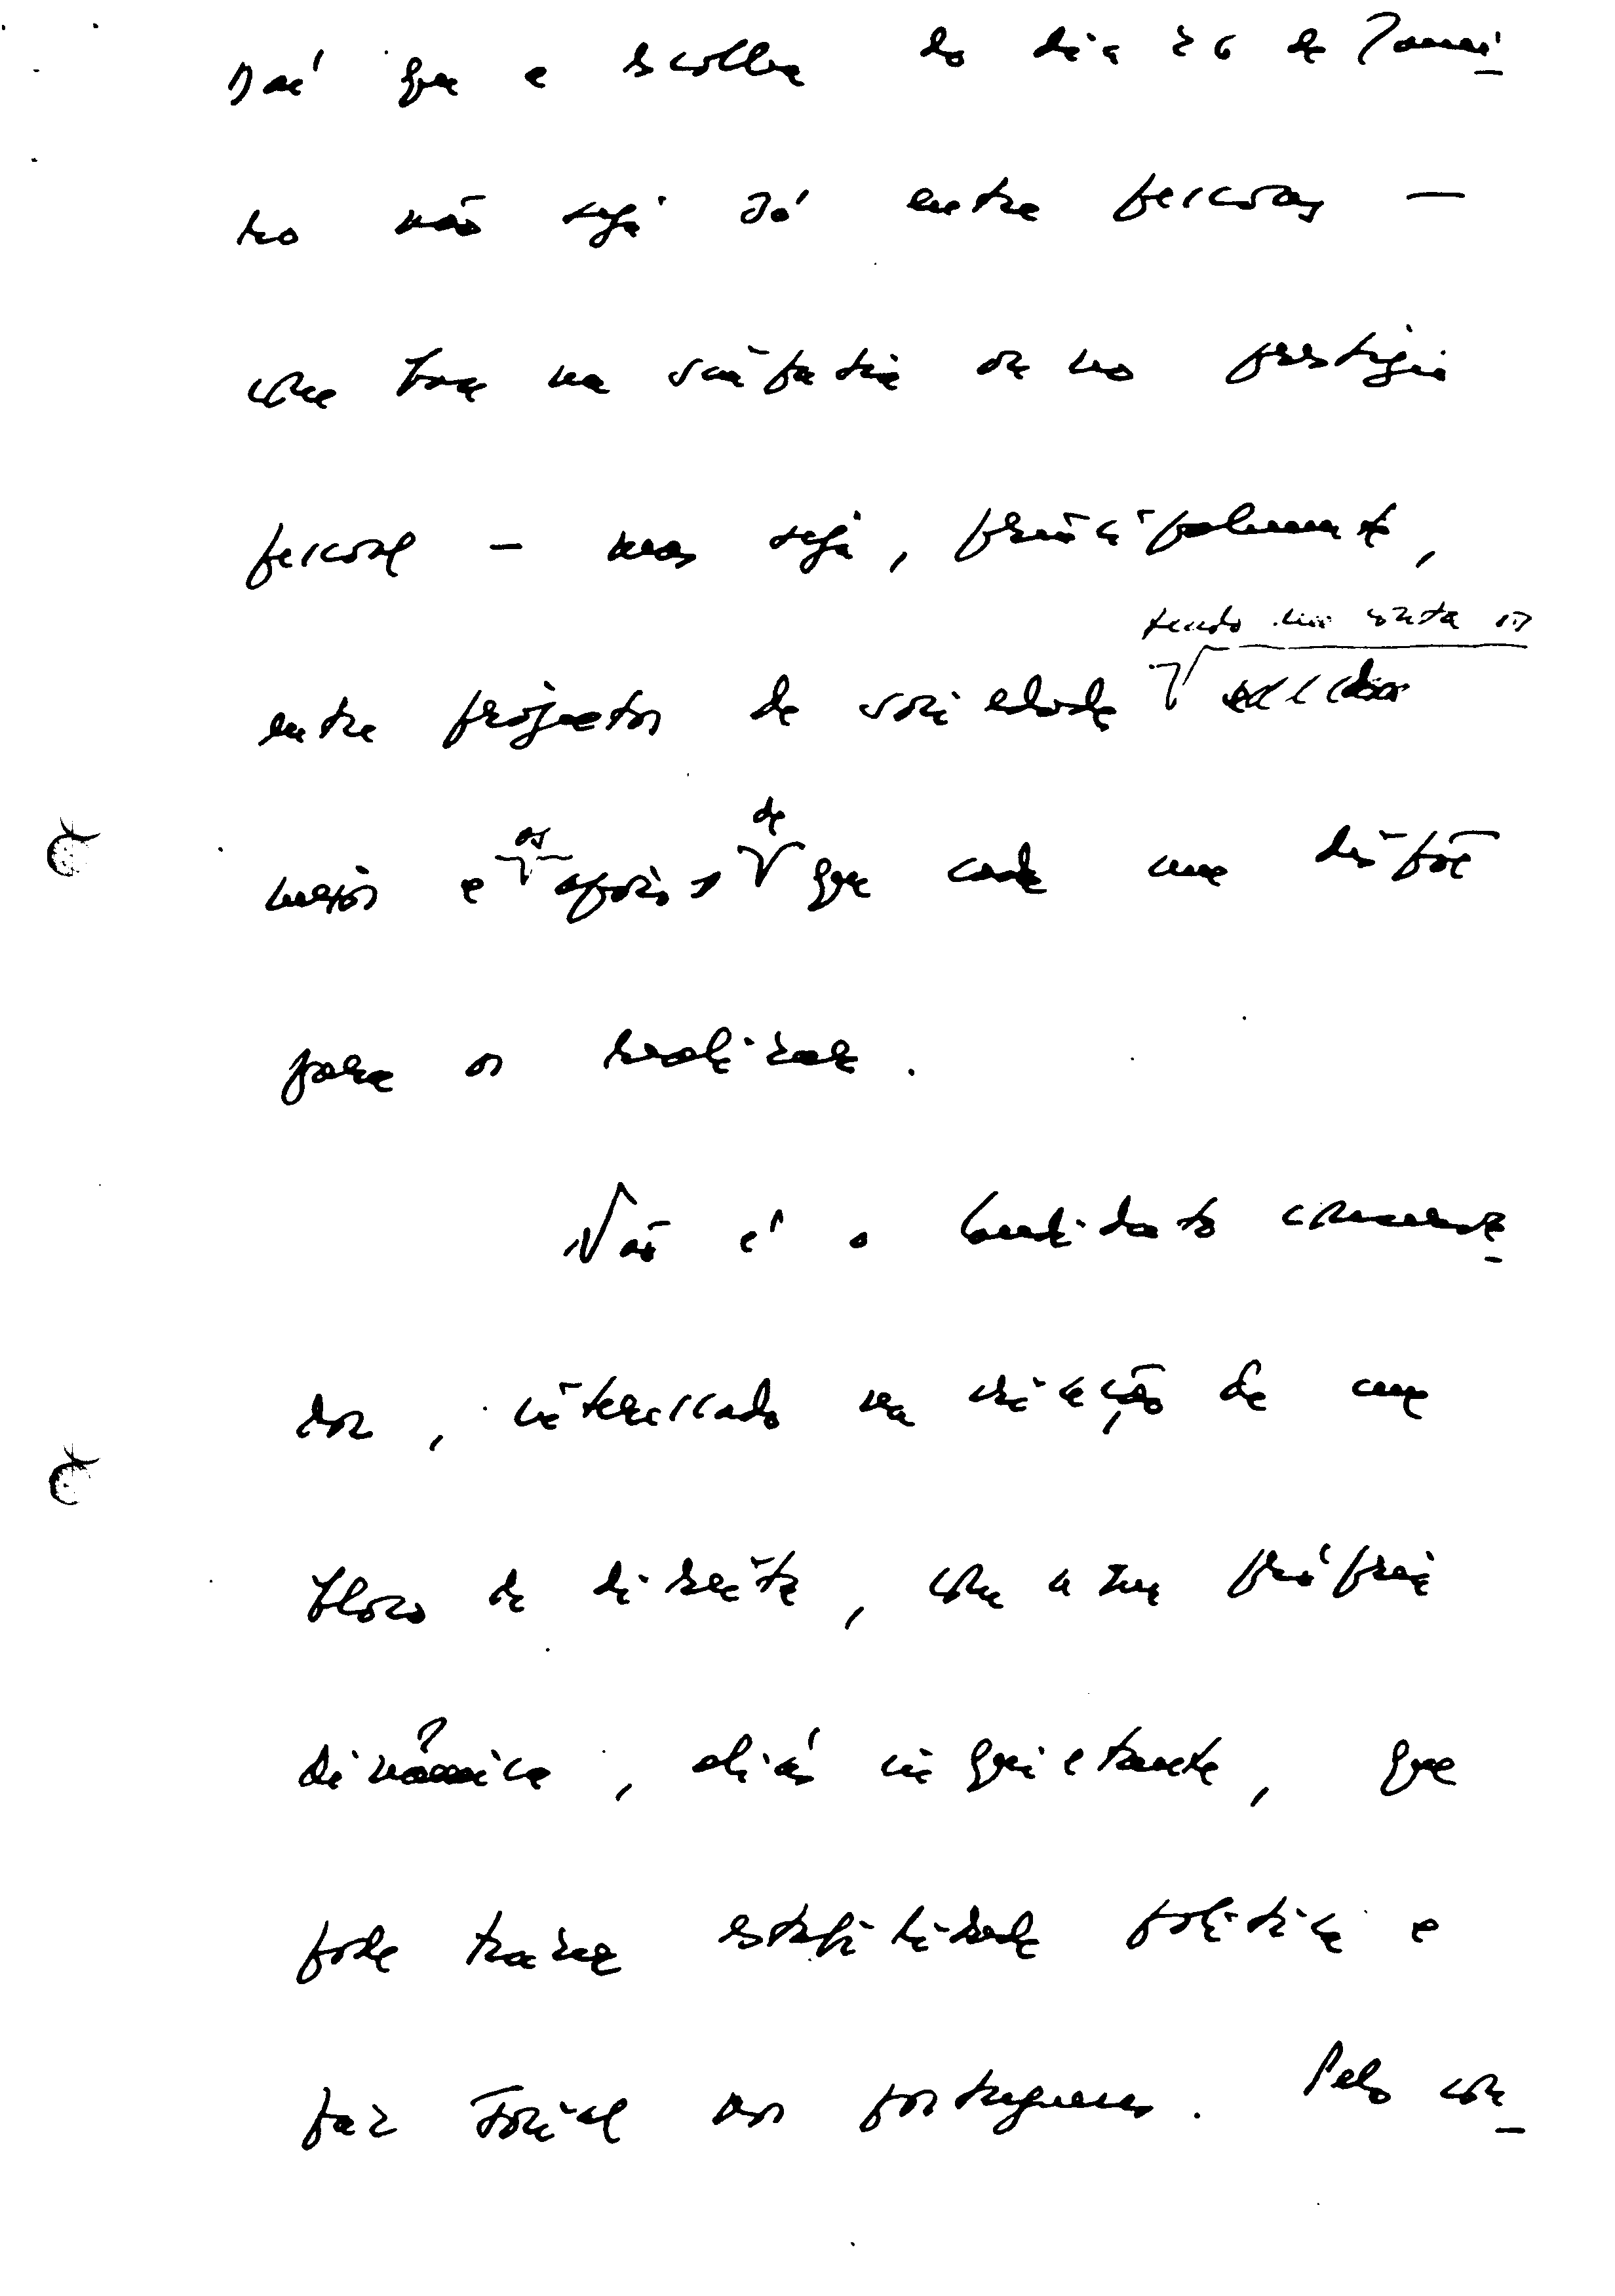 Daí que a escolha do dia 26 de Janei-
ro não seja só entre pessoas —
com base na simpatia ou no prestígio
pessoal — mas seja, principalmente,
tendo em conta os
entre projectos de sociedade
os de
meios e apoios que cada um dispõe
para os realizar.
Não é o candidato conserva-
dor, interessado na criação de um
bloco de direita, com a sua própria
dinâmica, aliás inquietante, que
pode trazer estabilidade política e
paz social aos portugueses. Pelo con-